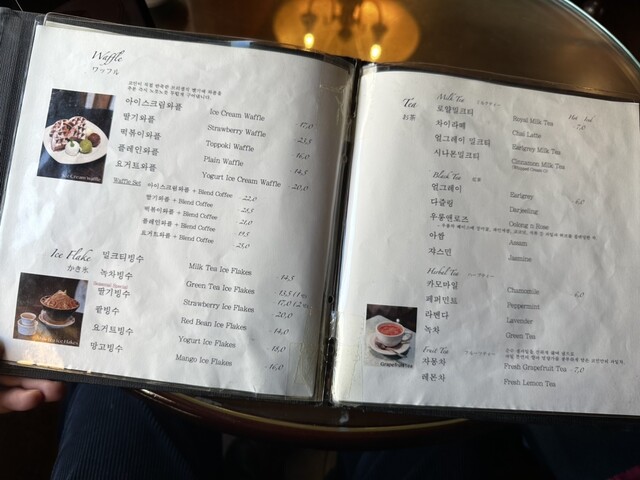 Waffle
ワッフル
아이스크림와플 Ice Cream Waffle 17,0
딸기와플 Strawberry Waffle 23,5
떡볶이와플 Toppoki Waffle 16,0
플레인와플 Plain Waffle 14,5
요거트와플 Yogurt Ice Cream Waffle 20,0
Waffle Set 아이스크림와플 + Blend Coffee 22,0
딸기와플 + Blend Coffee 28,5
떡볶이와플 + Blend Coffee 21,0
플레인와플 + Blend Coffee 19,5
요거트와플 + Blend Coffee 25,0
Ice Cream waffle
Ice Flake
かき氷
밀크티빙수 Milk Tea Ice Flakes 14,5
녹차빙수 Green Tea Ice Flakes
Seasonal Special
딸기빙수 Strawberry Ice Flakes
팥빙수 Red Bean Ice Flakes 14,0
요거트빙수 Yogurt Ice Flakes 18,0
망고빙수 Mango Ice Flakes 16,0
Tea
お茶
Milk Tea ミルクティー
Hot Iced
로얄밀크티 Royal Milk Tea 7,0
차이라떼 Chai Latte
얼그레이 밀크티 Earlgrey Milk Tea
시나몬밀크티 Cinnamon Milk Tea
Black Tea 紅茶
얼그레이 Earlgrey 6,0
다즐링 Darjeeling
우롱앤로즈 Oolong n Rose
아쌈 Assam
쟈스민 Jasmine
Herbal Tea ハーブティー
카모마일 Chamomile 6,0
페퍼민트 Peppermint
라벤다 Lavender
녹차 Green Tea
Fruit Tea フルーツティー
자몽차 Fresh Grapefruit Tea 7,0
레몬차 Fresh Lemon Tea
GrapefruitTea